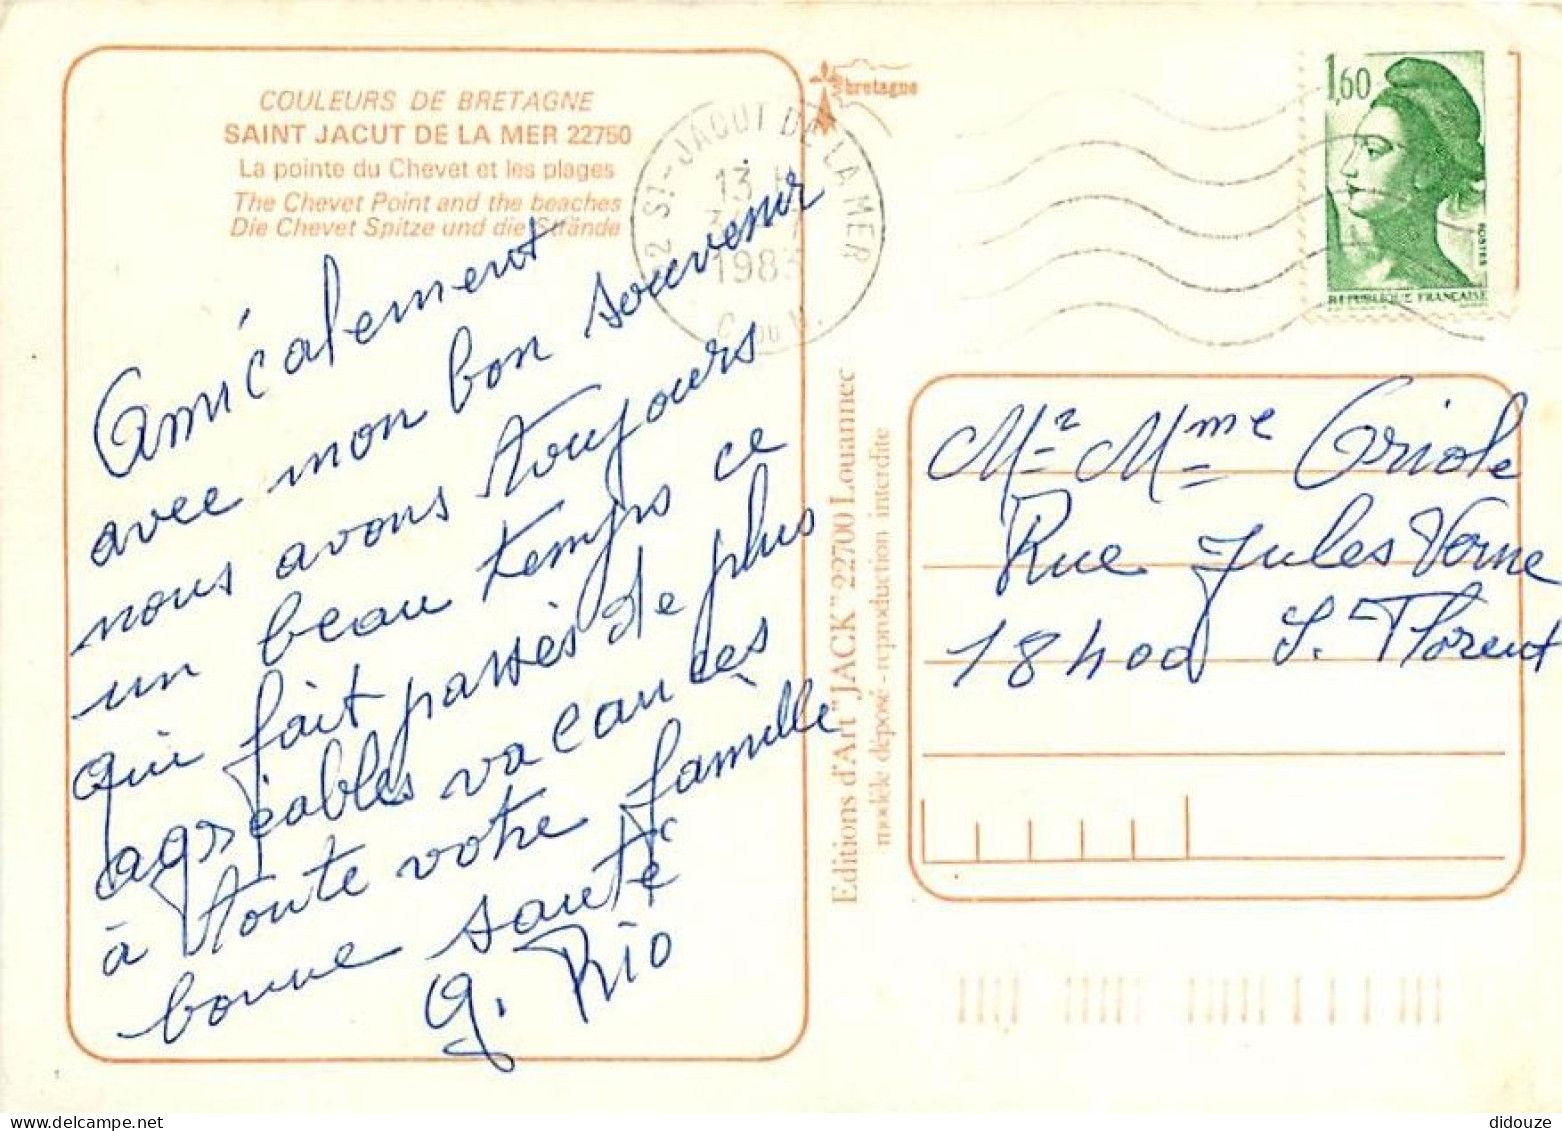 COULEURS DE BRETAGNE
SAINT JACUT DE LA MER 22750
La pointe du Chevet et les plages
The Chevet Point and the beaches
Die Chevet Spitze und die Strände
Amicalement
avec mon bon souvenir
nous avons toujours
un beau temps ce
qui fait passés de plus
agréables vacances
à toute votre famille
bonne santé
G. Rio
bretagne
22 ST-JACUT DE LA MER
13 H
1983
C. DU N.
1,60
POSTES
REPUBLIQUE FRANÇAISE
Editions d'Art "JACK" 22700 Louannec
modèle déposé - reproduction interdite
Mr Mme Oriole
Rue Jules Verne
18400 S. Florent
didouze